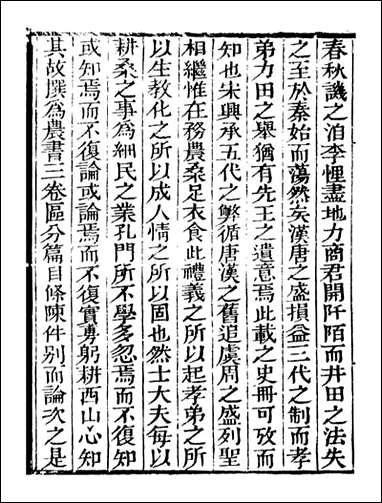 春秋譏之洎李悝盡地力商君開阡陌而井田之法失
之至於秦始而蕩然矣漢唐之盛損益三代之制而孝
弟力田之舉猶有先王之遺意焉此載之史冊可攷而
知也宋興承五代之弊循唐漢之舊追虞周之盛列聖
相繼惟在務農桑足衣食此禮義之所以起孝弟之所
以生教化之所以成人情之所以固也然士大夫每以
耕桑之事為細民之業孔門所不學多忽焉而不復知
或知焉而不復論或論焉而不復實旉躬耕西山心知
其故撰為農書三卷區分篇目條陳件别而論次之是